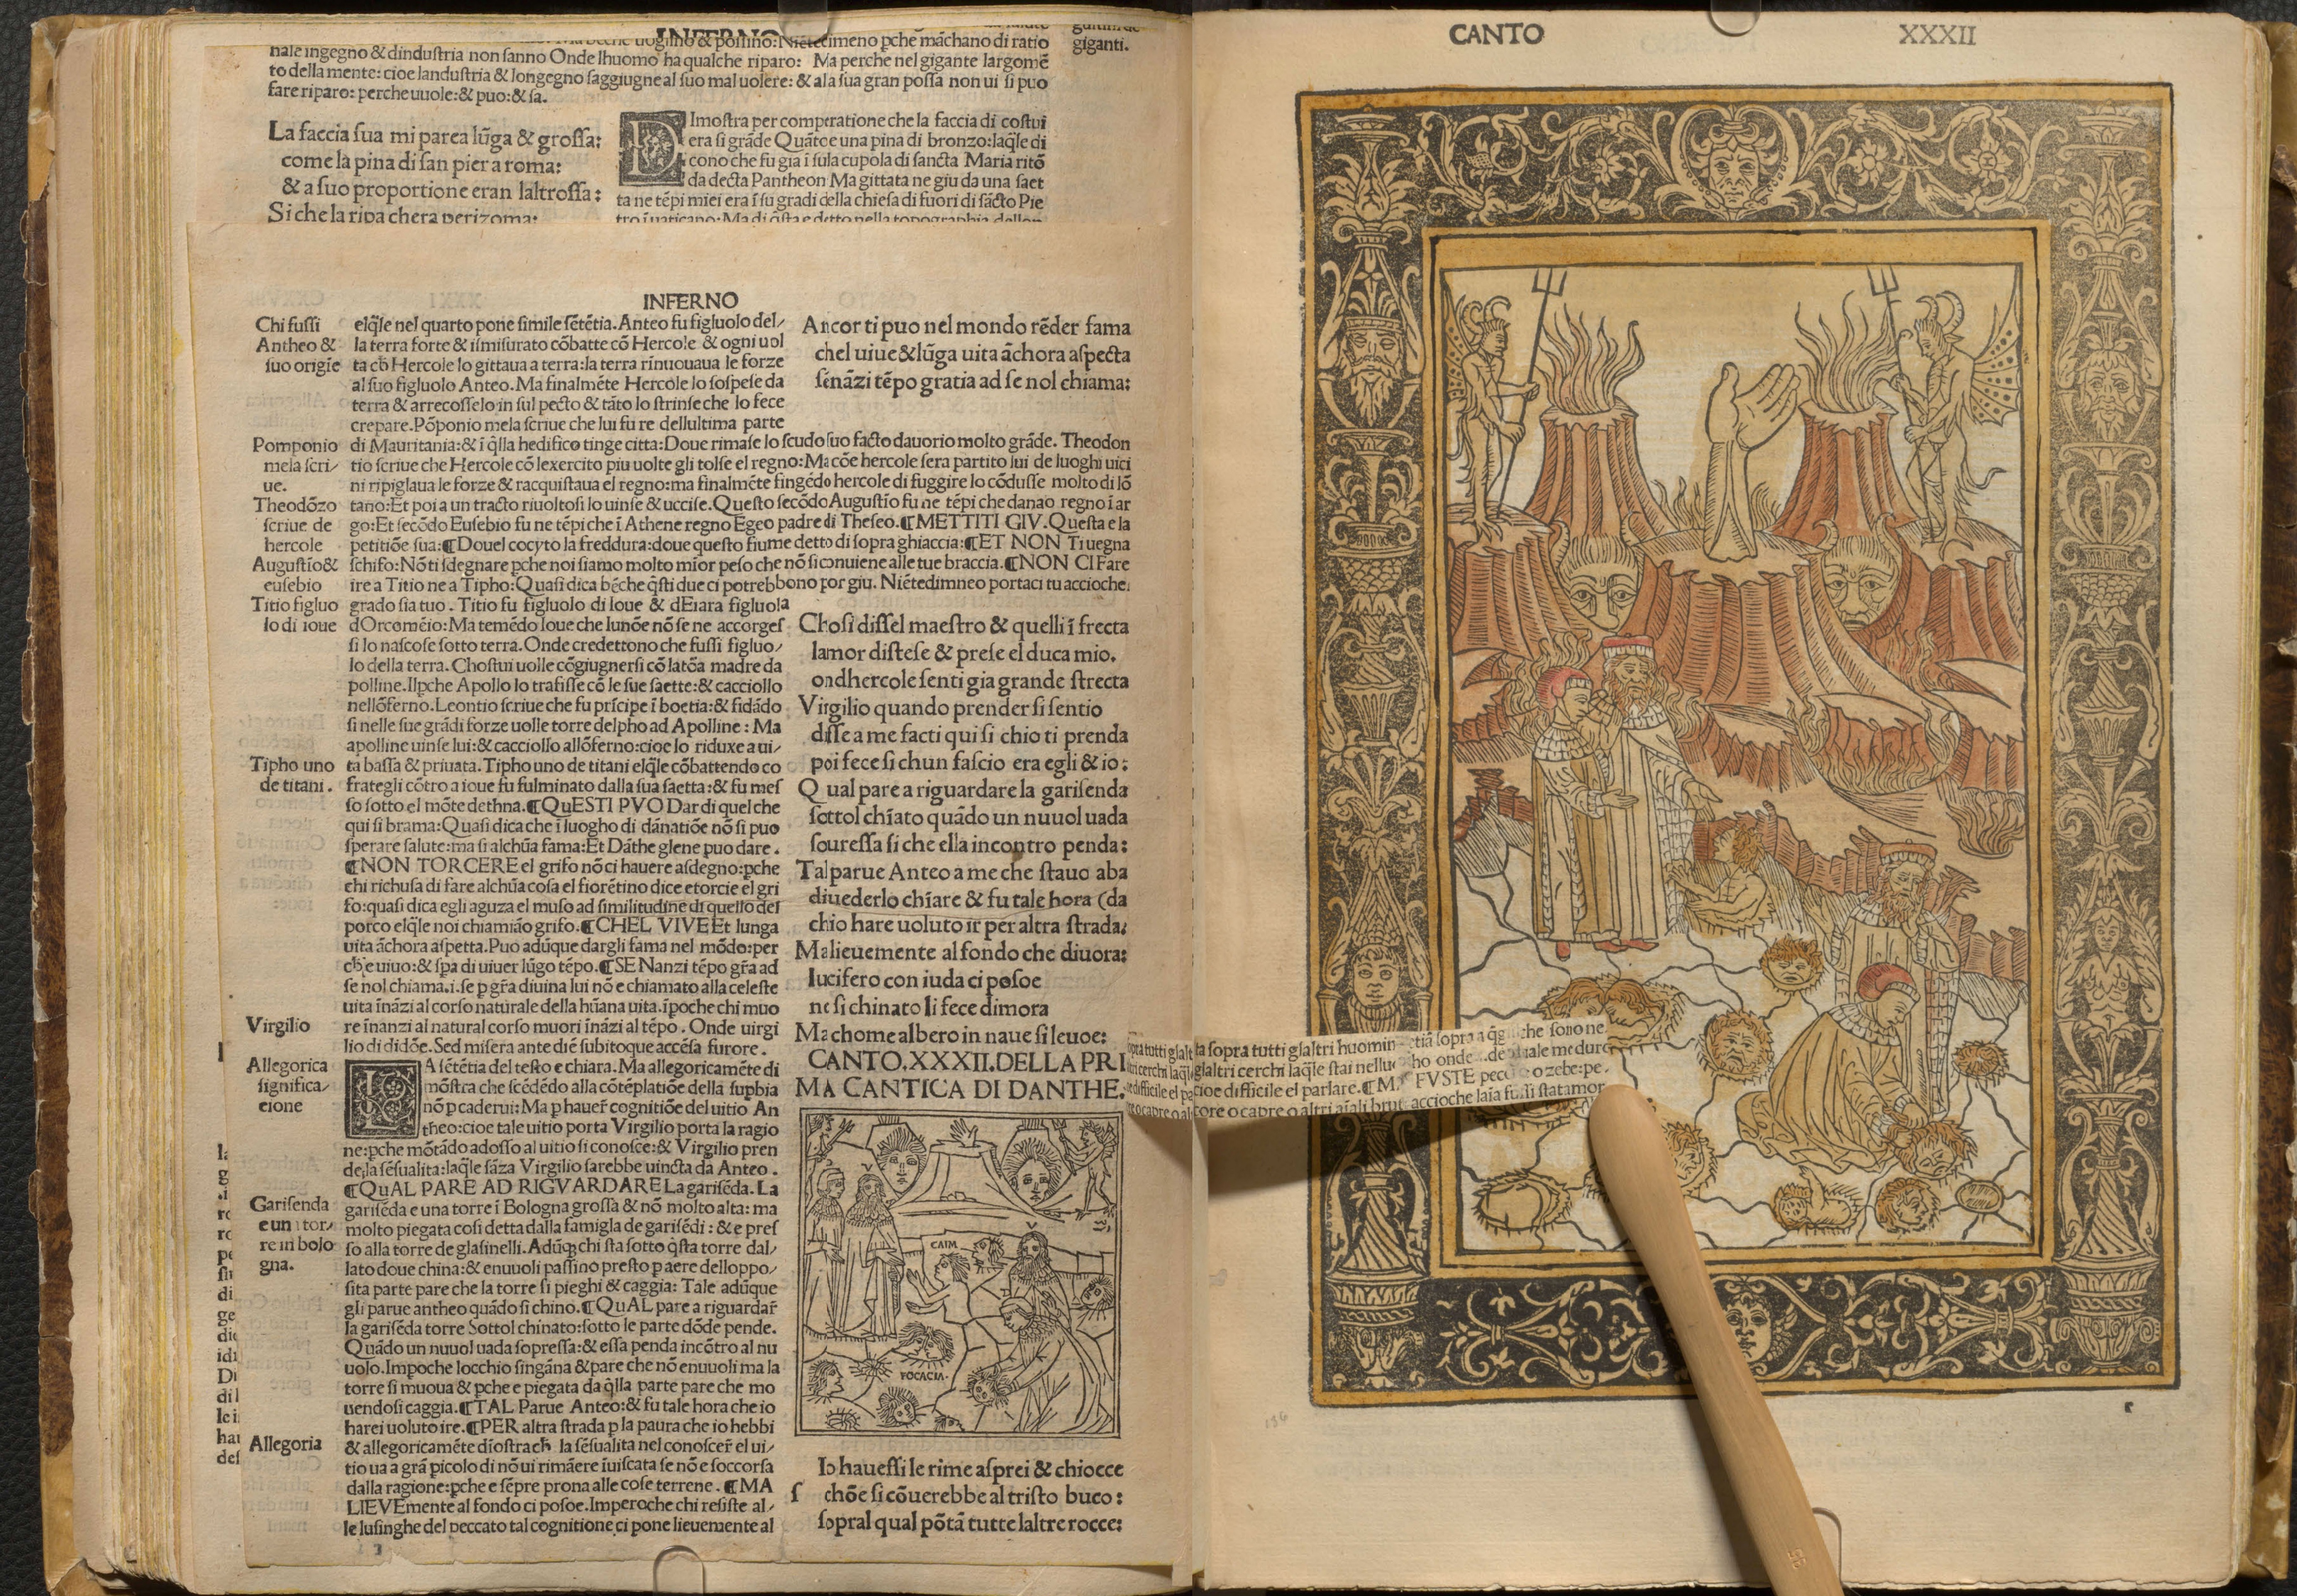 INFERNO
nale ingegno & dindustria non sanno Onde lhuomo ha qualche riparo: Ma perche nel gigante largomē
to della mente: cioe landustria & longegno saggiugne al suo mal uolere: & ala sua gran possa non ui si puo
fare riparo: perche uuole: & puo: & sa.
giganti.
La faccia sua mi parea lūga & grossa:
come la pina di san pier a roma:
& a suo proportione eran laltrossa:
Si che la ripa chera perizoma:
DImostra per comperatione che la faccia di costui
era si grāde Quātoe una pina di bronzo: laq̄le di
cono che fu gia ī sula cupola di sancta Maria ritō
da decta Pantheon Ma gittata ne giu da una saet
ta ne tēpi miei era ī su gradi della chiesa di fuori di sācto Pie
INFERNO
Chi fussi
Antheo &
suo origie
elq̄le nel quarto pone simile sētētia. Anteo fu figluolo del/
la terra forte & ismisurato cōbatte cō Hercole & ogni uol
ta cħ Hercole lo gittaua a terra: la terra rinuouaua le forze
al suo figluolo Anteo. Ma finalmēte Hercole lo sospese da
terra & arrecosselo in sul pecto & tāto lo strinse che lo fece
crepare. Pōponio mela scriue che lui fu re dellultima parte
Ancor ti puo nel mondo rēder fama
chel uiue & lūga uita āchora aspecta
sēnāzi tēpo gratia ad se nol chiama:
Pomponio
mela scri/
ue.
Theodōzo
scriue de
hercole
Augustīo &
eusebio
Titio figluo
lo di ioue
di Mauritania: & ī q̄lla hedifico tinge citta: Doue rimase lo scudo suo facto dauorio molto grāde. Theodon
tio scriue che Hercole cō lexercito piu uolte gli tolse el regno: Ma cōe hercole sera partito lui de luoghi uici
ni ripiglaua le forze & racquistaua el regno: ma finalmēte fingēdo hercole di fuggire lo cōdusse molto di lō
tano: Et poi a un tracto riuoltosi lo uinse & uccise. Questo secōdo Augustīo fu ne tēpi che danao regno ī ar
go: Et secōdo Eusebio fu ne tēpi che ī Athene regno Egeo padre di Theseo. ¶METTITI GIV. Questa e la
petitiōe sua: ¶Douel cocyto la freddura: doue questo fiume detto di sopra ghiaccia: ¶ET NON Ti uegna
schifo: Nō ti sdegnare pche noi siamo molto mior peso che nō si conuiene alle tue braccia. ¶NON CI Fare
ire a Titio ne a Tipho: Quasi dica bēche q̄sti due ci potrebbono por giu. Niētedimneo portaci tu accioche
grado sia tuo. Titio fu figluolo di Ioue & dElara figluola
dOrcomēio: Ma temēdo Ioue che lunōe nō se ne accorges
si lo nascose sotto terra. Onde credettono che fussi figluo/
lo della terra. Chostui uolle cōgiugnersi cō latōa madre da
polline. Ilpche Apollo lo trafisse cō le sue saette: & cacciollo
nellōferno. Leontio scriue che fu prīcipe ī boetia: & fidādo
si nelle sue grādi forze uolle torre delpho ad Apolline: Ma
apolline uinse lui: & cacciollo allōferno: cioe lo riduxe a ui/
Tipho uno
de titani.
ta bassa & priuata. Tipho uno de titani elq̄le cōbattendo co
frategli cōtro a ioue fu fulminato dalla sua saetta: & fu mes
so sotto el mōte dethna. ¶QuESTI PVO Dar di quel che
qui si brama: Quasi dica che ī luogho di dānatiōe nō si puo
sperare salute: ma si alchūa fama: Et Dāthe glene puo dare.
¶NON TORCERE el grifo nō ci hauere asdegno: pche
chi richusa di fare alchūa cosa el fiorētino dice etorcie el gri
fo: quasi dica egli aguza el muso ad similitudine di quello del
porco elq̄le noi chiamiāo grifo. ¶CHEL VIVE Et lunga
uita āchora aspetta. Puo adūque dargli fama nel mōdo: per
cħ e uiuo: & spa di uiuer lūgo tēpo. ¶SE Nanzi tēpo gr̄a ad
se nol chiama. i. se p gr̄a diuina lui nō e chiamato alla celeste
uita īnāzi al corso naturale della hūana uita. īpoche chi muo
Virgilio
re īnanzi al natural corso muori īnāzi al tēpo. Onde uirgi
lio di didōe. Sed misera ante diē subitoque accēsa furore.
Allegorica
significa/
cione
LA sētētia del testo e chiara. Ma allegoricamēte di
mōstra che scēdēdo alla cōtēplatiōe della supbia
nō p caderui: Ma p hauer̄ cognitiōe del uitio An
theo: cioe tale uitio porta Virgilio porta la ragio
ne: pche mōtādo adosso al uitio si conosce: & Virgilio pren
de la sēsualita: laq̄le sāza Virgilio sarebbe uincta da Anteo.
¶QuAL PARE AD RIGVARDARE La garisēda. La
Garisenda
e un tor/
re in bolo
gna.
garisēda e una torre ī Bologna grossa & nō molto alta: ma
molto piegata cosi detta dalla famigla de garisēdi: & e pres
so alla torre de glasinelli. Adūq; chi sta sotto q̄sta torre dal/
lato doue china: & enuuoli passino presto p aere delloppo/
sita parte pare che la torre si pieghi & caggia: Tale adūque
gli parue antheo quādo si chino. ¶QuAL pare a riguardar̄
la garisēda torre Sottol chinato: sotto le parte dōde pende.
Quādo un nuuol uada sopressa: & essa penda incōtro al nu
uolo. Impoche locchio singāna & pare che nō enuuoli ma la
torre si muoua & pche e piegata da q̄lla parte pare che mo
uendosi caggia. ¶TAL Parue Anteo: & fu tale hora che io
harei uoluto ire. ¶PER altra strada p la paura che io hebbi
Allegoria
& allegoricamēte dīostra cħ la sēsualita nel conoscer̄ el ui/
tio ua a grā picolo di nō ui rimāere īuiscata se nō e soccorsa
dalla ragione: pche e sēpre prona alle cose terrene. ¶MA
LIEVEmente al fondo ci posoe. Imperoche chi resiste al/
le lusinghe del peccato tal cognitione ci pone lieuemente al
Chosi dissel maestro & quelli ī frecta
lamor distese & prese el duca mio.
ondhercole senti gia grande strecta
Virgilio quando prender si sentio
disse a me facti qui si chio ti prenda
poi fece si chun fascio era egli & io:
Qual pare a riguardare la garisenda
sottol chīato quādo un nuuol uada
souressa si che ella incontro penda:
Tal parue Anteo a me che stauo aba
diuederlo chīare & fu tale hora (da
chio hare uoluto ir per altra strada:
Ma lieuemente al fondo che diuora:
lucifero con iuda ci posoe
ne si chinato li fece dimora
Ma chome albero in naue si leuoe:
CANTO.XXXII.DELLA PRI
MA CANTICA DI DANTHE.
CAIM
FOCACIA.
Io hauessi le rime asprei & chiocce
s chōe si cōuerebbe al tristo buco:
sopral qual pōtā tutte laltre rocce:
CANTO XXXII
la sopra tutti glaltri huomin
glaltri cerchi laq̄le stai nelluo
cioe difficile el parlare. ¶MA FVSTE peco o zebe: pe
core o capre o altri aīali brut accioche laīa fussi stata mor